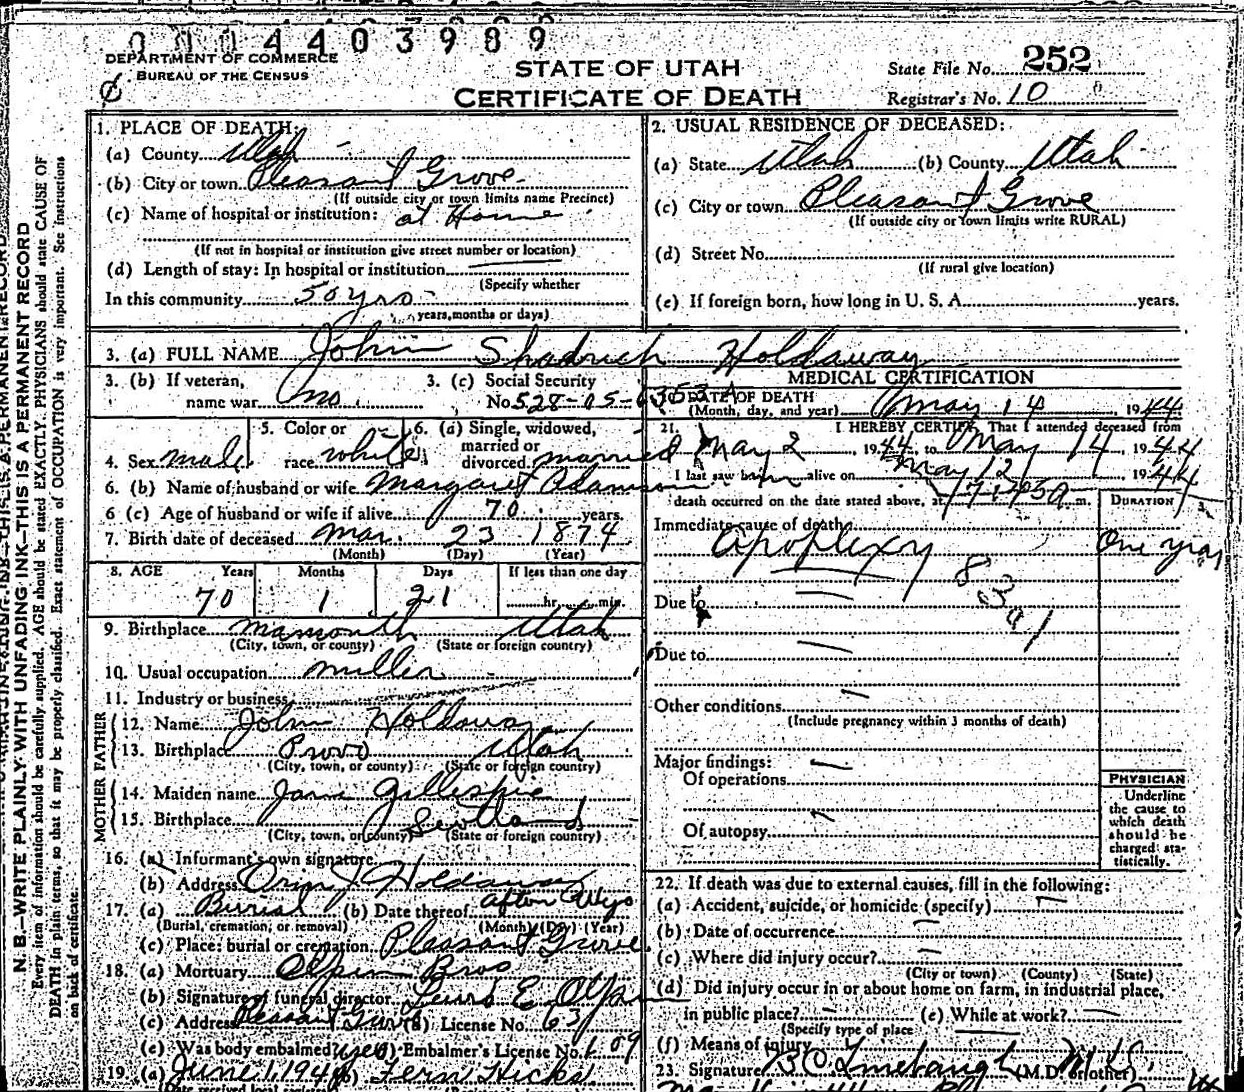 0 0 0 1 4 4 0 3 9 8 9
DEPARTMENT OF COMMERCE
BUREAU OF THE CENSUS
STATE OF UTAH
CERTIFICATE OF DEATH
State File No. 252
Registrar's No. 10
N. B.—WRITE PLAINLY WITH UNFADING INK—THIS IS A PERMANENT RECORD
Every item of information should be carefully supplied. AGE should be stated EXACTLY. PHYSICIANS should state CAUSE OF
DEATH in plain terms, so that it may be properly classified. Exact statement of OCCUPATION is very important. See instructions
on back of certificate.
1. PLACE OF DEATH:
(a) County Utah
(b) City or town Pleasant Grove
(If outside city or town limits name Precinct)
(c) Name of hospital or institution: at Home
(If not in hospital or institution give street number or location)
(d) Length of stay: In hospital or institution
(Specify whether
In this community 50 yrs
years, months or days)
2. USUAL RESIDENCE OF DECEASED:
(a) State Utah (b) County Utah
(c) City or town Pleasant Grove
(If outside city or town limits write RURAL)
(d) Street No.
(If rural give location)
(e) If foreign born, how long in U. S. A. years.
3. (a) FULL NAME John Shadrich Holdaway
3. (b) If veteran, name war no
3. (c) Social Security No. 528-05-6353 A
4. Sex male
5. Color or race white
6. (a) Single, widowed, married or divorced married
6. (b) Name of husband or wife Margaret Adamson
6 (c) Age of husband or wife if alive 70 years
7. Birth date of deceased Mar. 23 1874
(Month) (Day) (Year)
8. AGE Years Months Days If less than one day
70 1 21 hr. min.
9. Birthplace Mamouth Utah
(City, town, or county) (State or foreign country)
10. Usual occupation miller
11. Industry or business
FATHER
12. Name John Holdaway
13. Birthplace Provo Utah
(City, town, or county) (State or foreign country)
MOTHER
14. Maiden name Jane Gillespie
15. Birthplace Scotland
(City, town, or county) (State or foreign country)
16. (a) Informant's own signature
(b) Address Orin J. Holdaway
Afton Wyo
17. (a) Burial (b) Date thereof
(Burial, cremation, or removal) (Month) (Day) (Year)
(c) Place: burial or cremation Pleasant Grove
18. (a) Mortuary Olpin Bros
(b) Signature of funeral director Lewis E. Olpin
(c) Address Pleasant Grove (d) License No. 63
(e) Was body embalmed? yes (f) Embalmer's License No. 109
19. (a) June 1, 1944 (b) Fern Hicks
MEDICAL CERTIFICATION
20. DATE OF DEATH
(Month, day, and year) May 14, 1944
21. I HEREBY CERTIFY, That I attended deceased from
May 2, 1944, to May 14, 1944
I last saw him alive on May 12, 1944
death occurred on the date stated above, at m.
DURATION
Immediate cause of death
Apoplexy One year
83a1
Due to
Due to
Other conditions
(Include pregnancy within 3 months of death)
Major findings:
Of operations
Of autopsy
PHYSICIAN
Underline
the cause to
which death
should be
charged sta-
tistically.
22. If death was due to external causes, fill in the following:
(a) Accident, suicide, or homicide (specify)
(b) Date of occurrence
(c) Where did injury occur?
(City or town) (County) (State)
(d) Did injury occur in or about home on farm, in industrial place,
in public place? (e) While at work?
(Specify type of place
(f) Means of injury
23. Signature B O Linebaugh M D (M.D. or other)